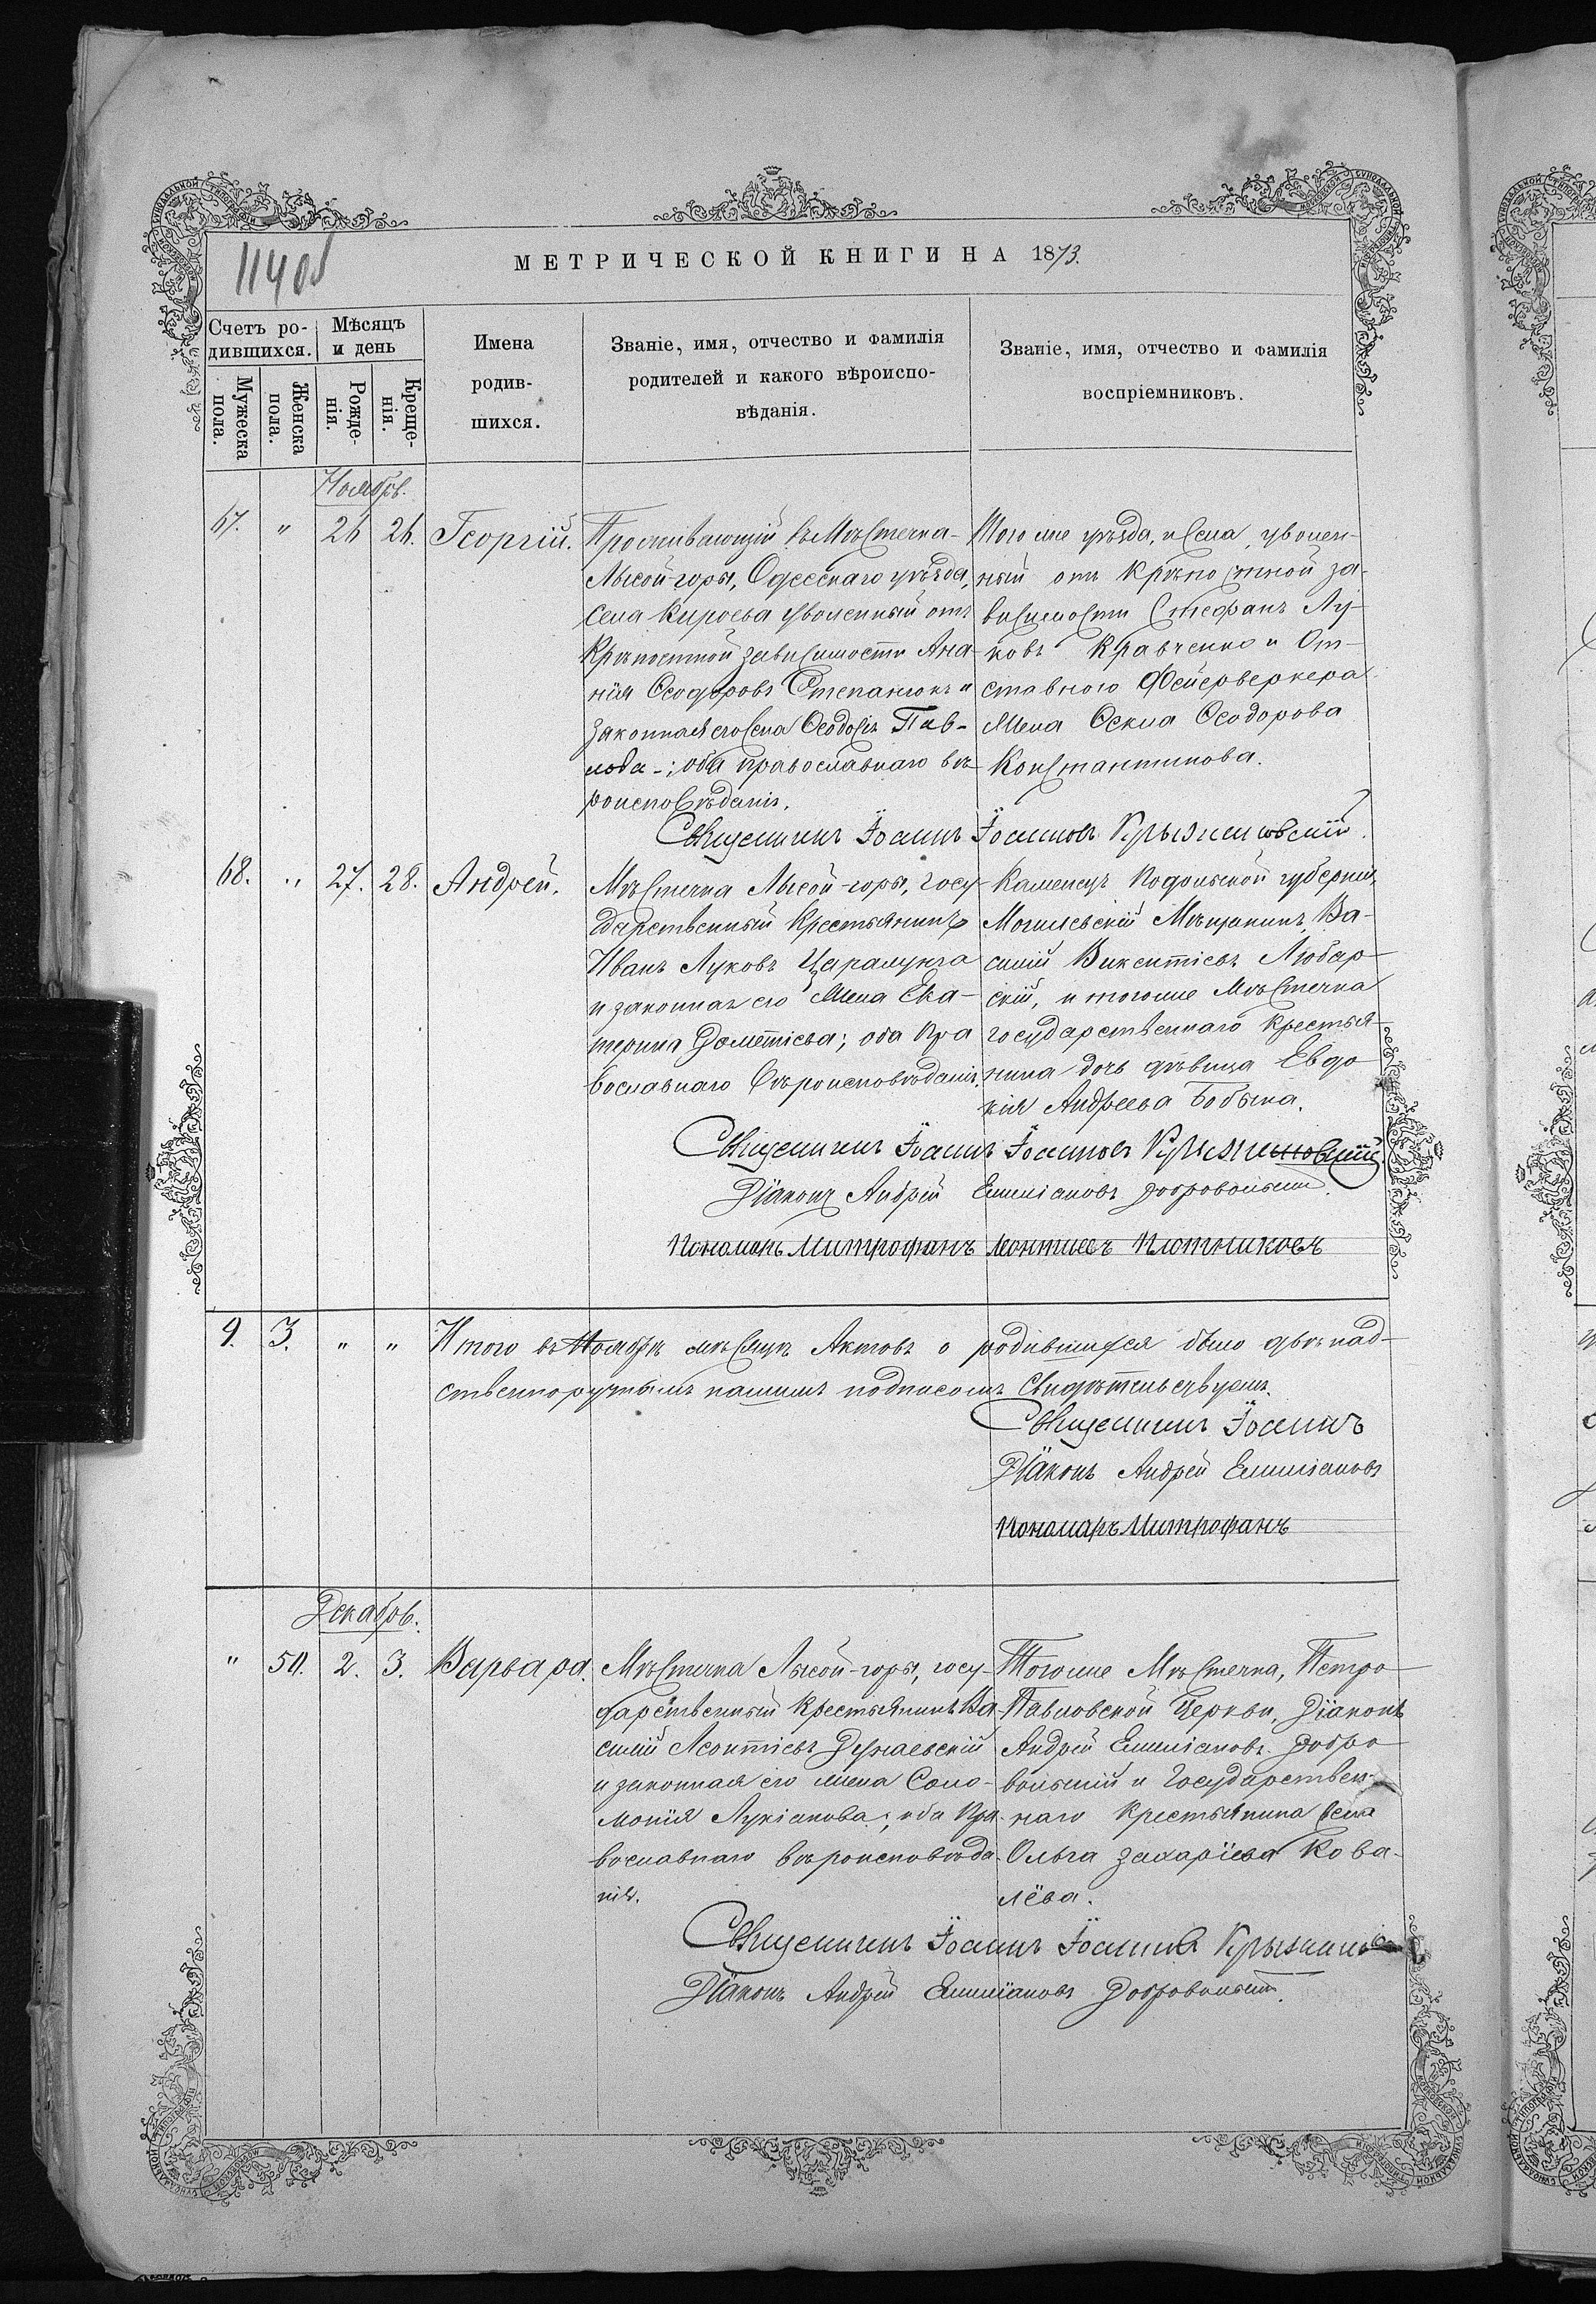 114 об
МЕТРИЧЕСКОЙ КНИГИ НА 1873.
Счетъ ро-
дившихся.
Мѣсяцъ
и день
Мужеска
пола.
Женска
пола.
Рожде-
нія.
Креще-
нія.
Имена
родив-
шихся.
Званіе, имя, отчество и фамилія
родителей и какого вѣроиспо-
вѣданія.
Званіе, имя, отчество и фамилія
воспріемниковъ.
Ноябрь.
67. " 26 26. Георгій.
Проживающій въ Мѣстечка-
Лысой-горы, Одесскаго уѣзда,
Села Кироева уволенный отъ
Крѣпостной зависимости Ана-
нія Ѳеодоровъ Степанюкъ и
законная его жена Ѳеодосія Пав-
лова-; оба православнаго вѣ-
роисповѣданія.
Того же уѣзда, и Села, уволен-
ный отъ крѣпостной за-
висимости Стефанъ Лу-
ковъ Кравченко и От-
ставного Фейерверкера
жена Ѳекла Ѳеодорова
Константинова.
Священникъ Іоаннъ Іоанновъ Крыжановскій.
68. " 27. 28. Андрей.
Мѣстечка Лысой-горы, госу-
дарственный Крестьянинъ
Иванъ Луковъ Царалунга
и законная его жена Ека-
терина Дометіева; оба Пра
вославнаго Вѣроисповѣданія.
Каменецъ Подольской губерніи,
Могилевскій Мѣщанинъ Ва-
силій Викентіевъ Любар-
скій, и тогоже Мѣстечка
государственнаго Крестья-
нина дочь дѣвица Евдо
кія Андреева Бобына.
Священникъ Іоаннъ Іоанновъ Крыжановскій
Діаконъ Андрей Емиліановъ Добровольскій.
Пономарь Митрофанъ Леонтіевъ Плотниковъ
9. 3. " " Итого въ Ноябрѣ мѣсяцѣ Актовъ о родившихся было двѣнад-
ственноручнымъ нашимъ подписомъ Свидѣтельствуемъ.
Священникъ Іоаннъ
Діаконъ Андрей Емиліановъ
Пономарь Митрофанъ
Декабрь.
" 50. 2. 3. Варвара.
Мѣстечка Лысой-горы, госу-
дарственный Крестьянинъ Ва
силій Леонтіевъ Дунаевскій
и законная его жена Соло-
монія Лукіанова; оба Пра-
вославнаго вѣроисповѣда
нія.
Тогоже Мѣстечка, Петро
Павловской Церкви, Діаконъ
Андрей Емиліановъ Добро
вольскій и Государствен-
наго Крестьянина жена
Ольга Захаріева Кова-
лёва.
Священникъ Іоаннъ Іоанновъ
Діаконъ Андрей Емиліановъ Добровольскій.